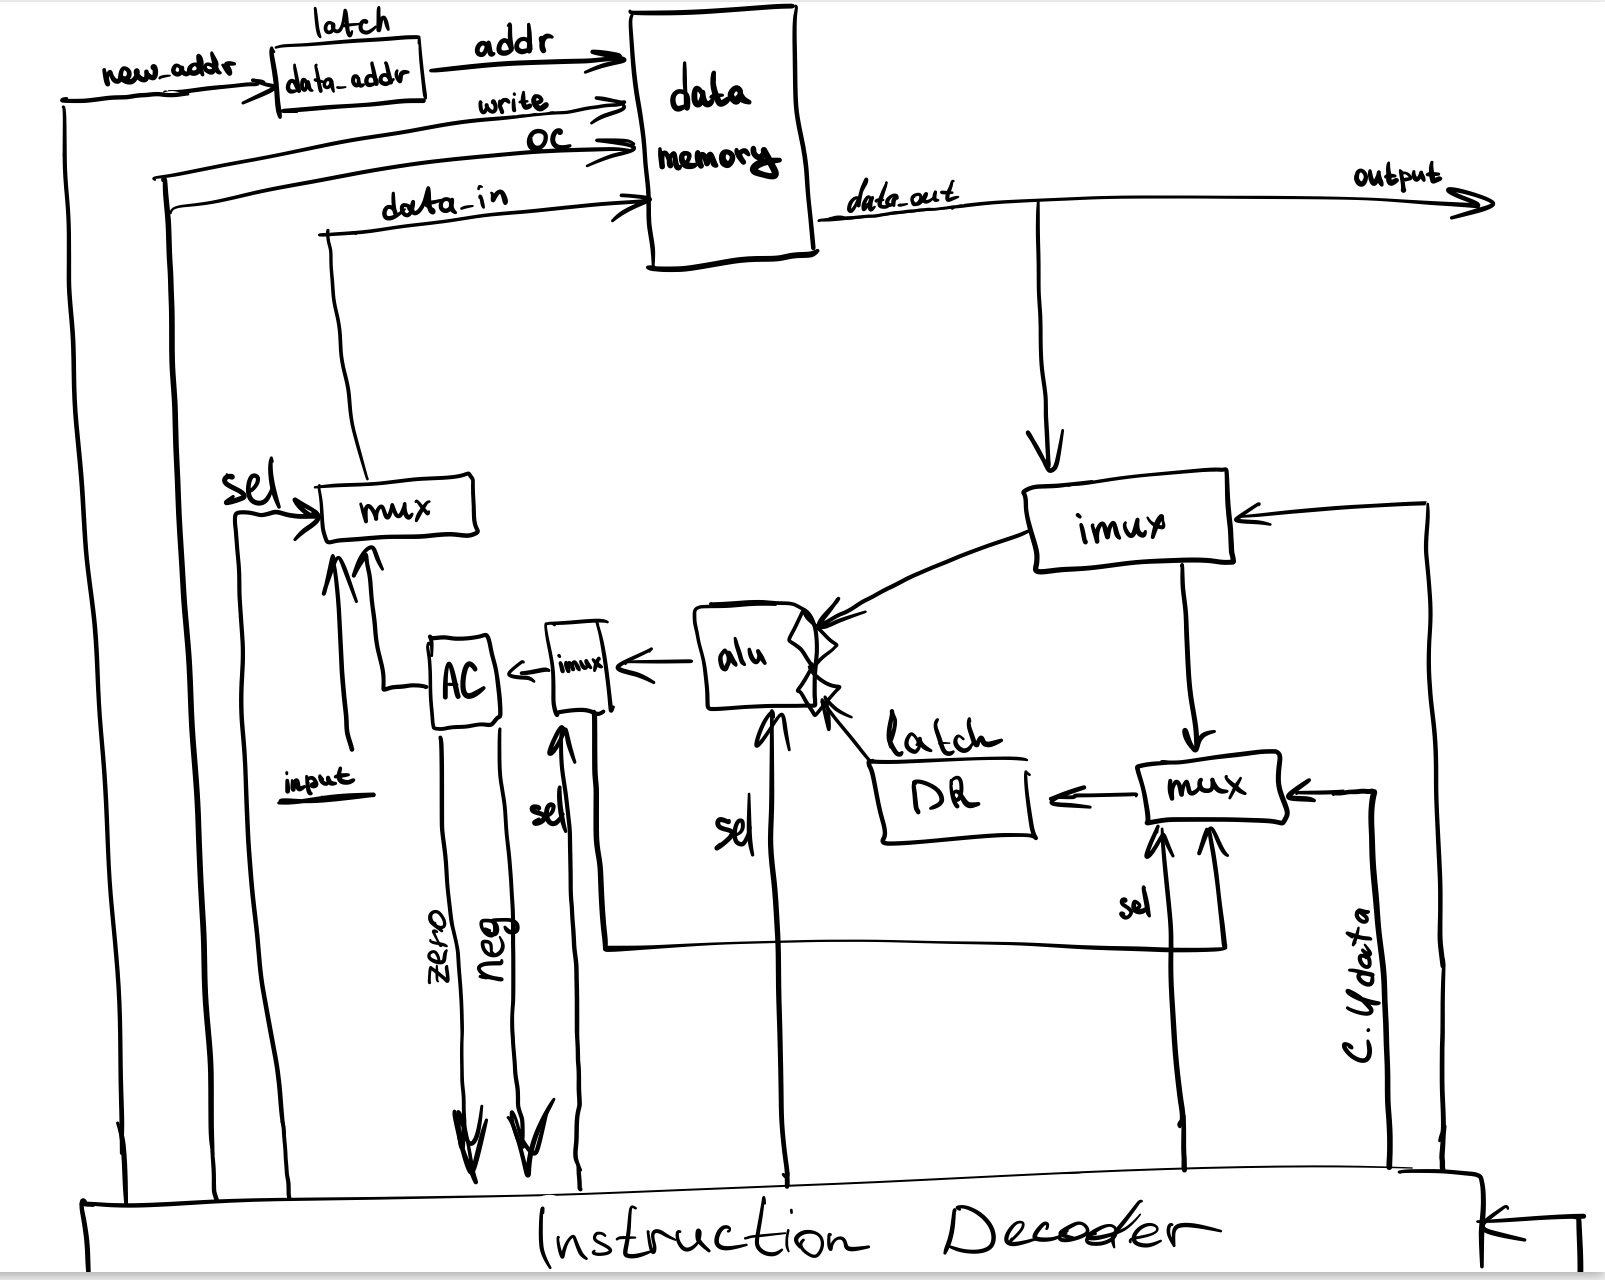 latch
new_addr
data_addr
addr
write
oc
data_in
data
memory
data_out
output
sel
mux
imux
input
AC
imux
alu
latch
DR
mux
sel
sel
sel
zero
neg
C.U data
Instruction Decoder